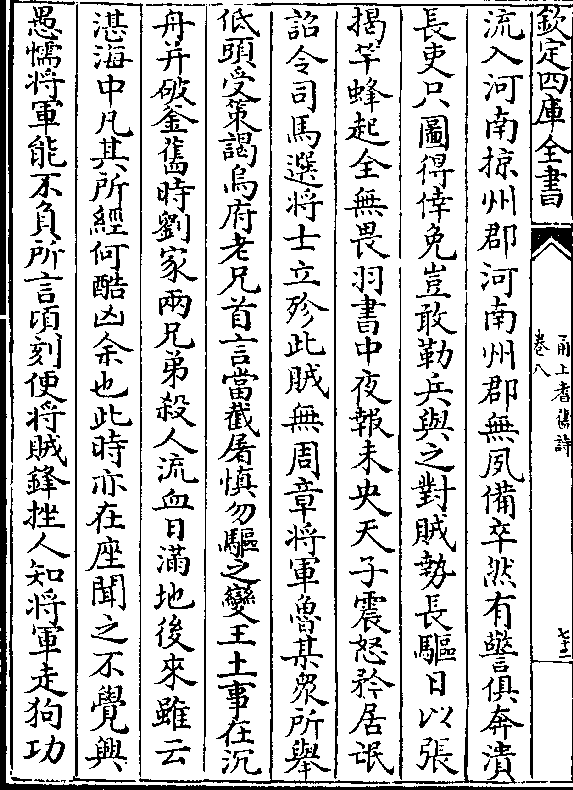 欽定四庫全書
甬上耆舊詩
卷八
七十二
流入河南掠州郡河南州郡無夙備卒然有警俱奔潰
長吏只圖得倖免豈敢勒兵與之對賊勢長驅日以張
揭竿蜂起全無畏羽書中夜報未央天子震怒矜居氓
詔令司馬選將士立殄此賊無周章將軍魯某衆所舉
低頭受策謁烏府老兄首言當截屠慎勿驅之變王土事在沉
舟并破釜舊時劉家兩兄弟殺人流血日滿地後來雖云
湛海中凡其所經何酷凶余也此時亦在座聞之不覺興
愚懦將軍能不負所言頃刻使將賊鋒挫人知將軍走狗功